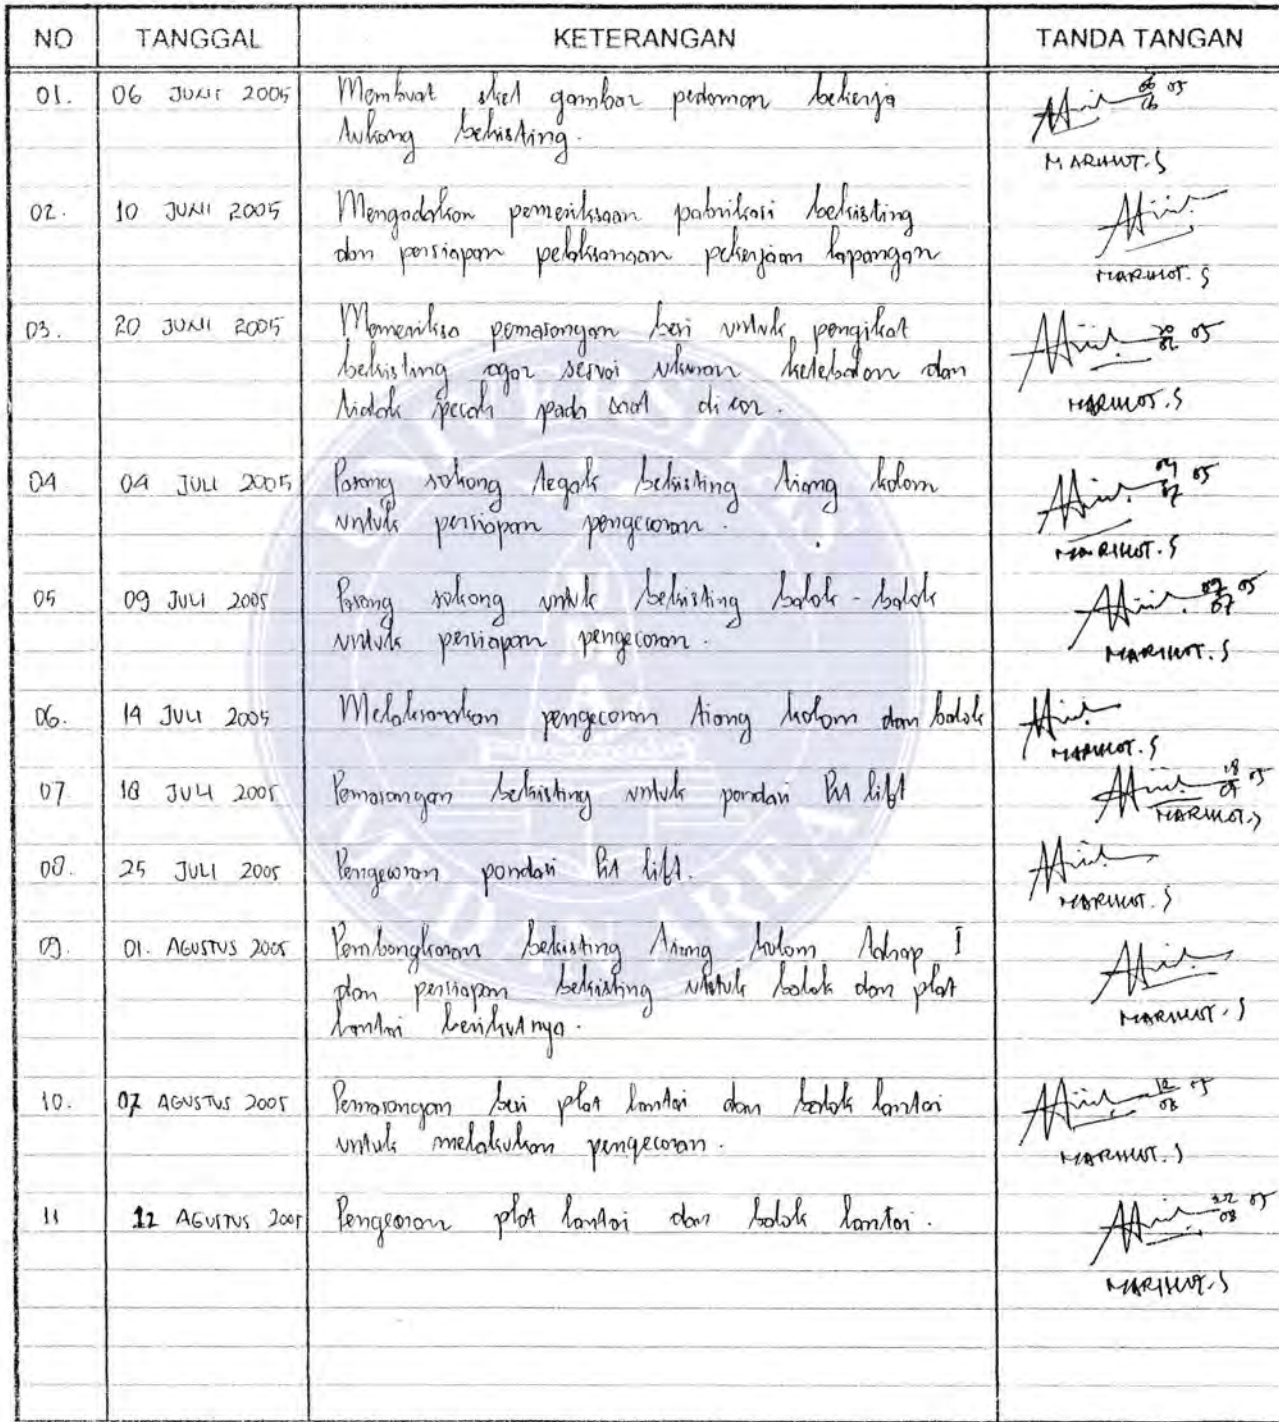 NO TANGGAL KETERANGAN TANDA TANGAN
01. 06 JUNI 2005 Membuat sket gambar pedoman bekerja
tukang bekisting.
06 05
06
MARIHOT.S
02. 10 JUNI 2005 Mengadakan pemeriksaan pabrikasi bekisting
dan persiapan pelaksanaan pekerjaan lapangan
MARIHOT.S
03. 20 JUNI 2005 Memeriksa pemasangan besi untuk pengikat
bekisting agar sesuai ukuran ketebalan dan
tidak pecah pada saat di cor.
20 05
06
MARIHOT.S
04 04 JULI 2005 Pasang sokong tegak bekisting tiang kolom
untuk persiapan pengecoran.
04 05
07
MARIHOT.S
05 09 JULI 2005 Pasang sokong untuk bekisting balok - balok
untuk persiapan pengecoran.
09 05
07
MARIHOT.S
06. 14 JULI 2005 Melaksanakan pengecoran tiang kolom dan balok
MARIHOT.S
07. 18 JULI 2005 Pemasangan bekisting untuk pondasi Pit lift
18 05
07
MARIHOT.S
08. 25 JULI 2005 Pengecoran pondasi Pit lift.
MARIHOT.S
09. 01. AGUSTUS 2005 Pembongkaran bekisting tiang kolom tahap I
dan persiapan bekisting untuk balok dan plat
lantai berikutnya.
MARIHOT.S
10. 07 AGUSTUS 2005 Pemasangan besi plat lantai dan balok lantai
untuk melakukan pengecoran.
12 05
08
MARIHOT.S
11 12 AGUSTUS 2005 Pengecoran plat lantai dan balok lantai.
12 05
08
MARIHOT.S
UNIVERSITAS
MEDAN AREA